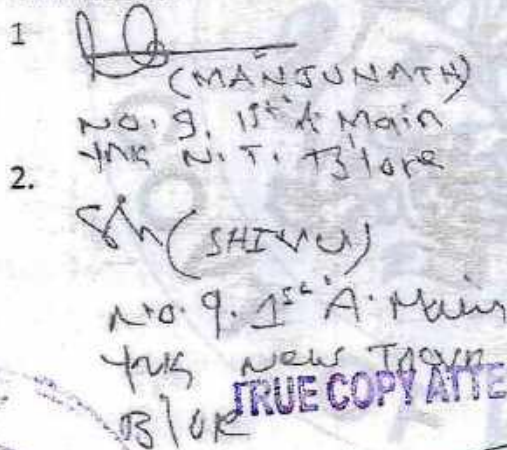 1
(MANJUNATH)
No. 9, 1st 'A' Main
YNK N.T. B'lore
2.
(SHIVU)
No. 9. 1st 'A' Main
YNK New Town
B'lore
TRUE COPY ATTE